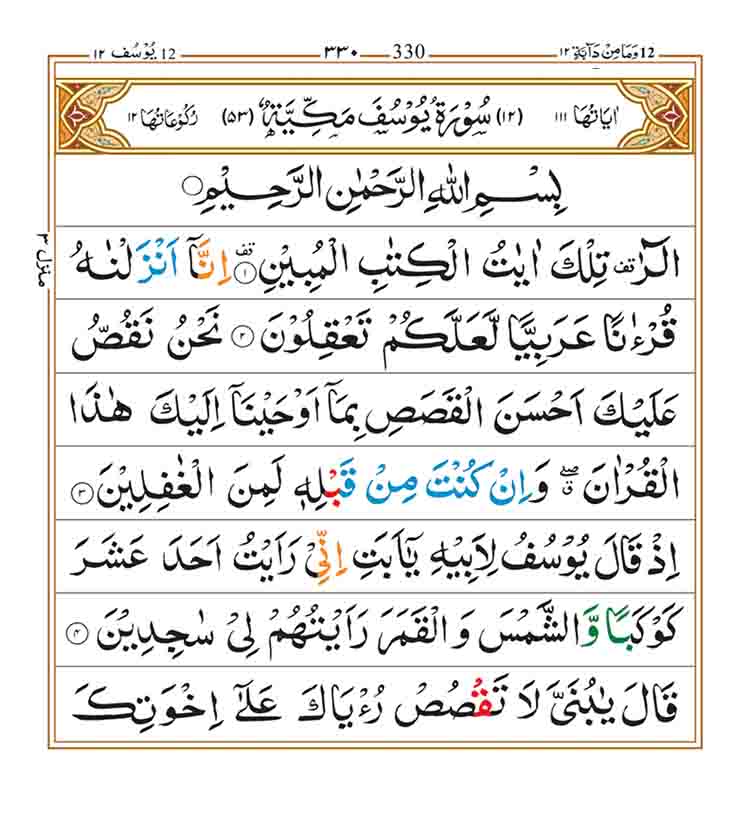 ١٢ وَمَا مِنْ دَآبَّةٍ 12 330 ٣٣٠ 12 يُوْسُف ١٢
اٰيَاتُهَا ١١١ (١٢) سُوْرَةُ يُوْسُفَ مَكِّيَّةٌ (٥٣) رُكُوْعَاتُهَا ١٢
بِسْمِ اللّٰهِ الرَّحْمٰنِ الرَّحِيْمِ
الٓرٰ تف تِلْكَ اٰيٰتُ الْكِتٰبِ الْمُبِيْنِ ١ تف اِنَّآ اَنْزَلْنٰهُ
منزل ٣
قُرْءٰنًا عَرَبِيًّا لَّعَلَّكُمْ تَعْقِلُوْنَ ٢ نَحْنُ نَقُصُّ
عَلَيْكَ اَحْسَنَ الْقَصَصِ بِمَآ اَوْحَيْنَآ اِلَيْكَ هٰذَا
الْقُرْاٰنَ ۖق وَاِنْ كُنْتَ مِنْ قَبْلِهٖ لَمِنَ الْغٰفِلِيْنَ ٣
اِذْ قَالَ يُوْسُفُ لِاَبِيْهِ يٰٓاَبَتِ اِنِّيْ رَاَيْتُ اَحَدَ عَشَرَ
كَوْكَبًا وَّالشَّمْسَ وَالْقَمَرَ رَاَيْتُهُمْ لِيْ سٰجِدِيْنَ ٤
قَالَ يٰبُنَيَّ لَا تَقْصُصْ رُءْيَاكَ عَلٰٓى اِخْوَتِكَ